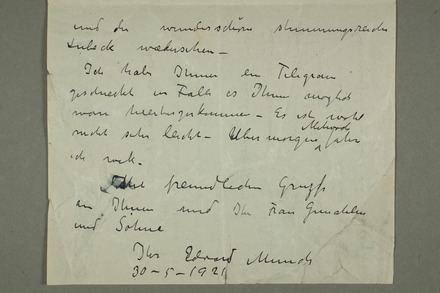 und die wunderschöne stimmungsreiche
Lübeck wiedersehen –
Ich habe Ihnen ein Telegram
geschickt im Falls es Ihnen möglich
wäre hierherzukommen – Es ist wohl
nicht sehr leicht – Übermorgen
Mittwoch
fahr
ich weck.
freundlichen Gruss
an Ihnen und Ihr Frau Gemahlin
und Söhne
Ihr Edvard Munch
30-5-1921